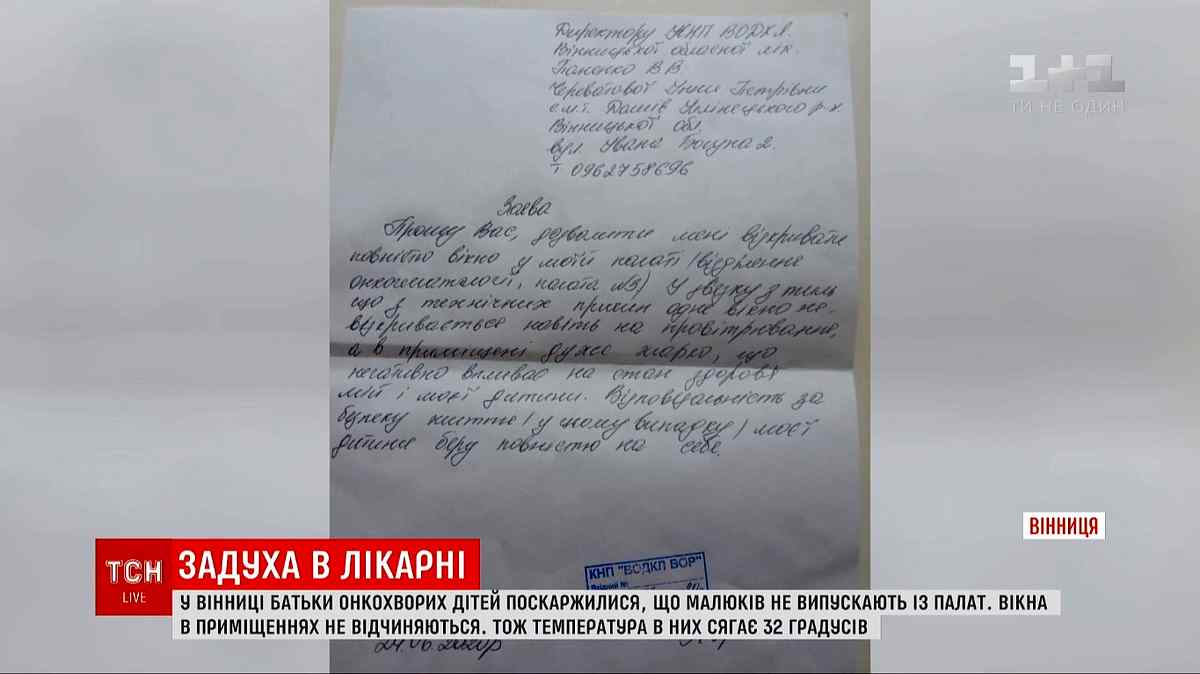 Директору КНП ВОДКЛ.
Вінницької обласної лік.
В В
Петрівни
с.м.т. Дашів Іллінецького р-н
Вінницької обл.
вул. Івана Богуна 2.
т 0962758696
1+1
ТИ НЕ ОДИН
Заява
Прошу Вас, дозвольте мені відкривати
повністю вікно у моїй палаті /відділення
онкогематології, палата №3/ У звязку з тим
що з технічних причин одне вікно не
відкривається навіть на провітрювання,
а в приміщені дуже жарко, що
негативно впливає на стан здоровя
мій і моєї дитини. Відповідальність за
безпеку життя /у цьому випадку/ моєї
дитини беру повністю на себе.
ВІННИЦЯ
КНП "ВОДКЛ ВОР"
Вхідний №
24.06.2020р
ТСН
LIVE
ЗАДУХА В ЛІКАРНІ
У ВІННИЦІ БАТЬКИ ОНКОХВОРИХ ДІТЕЙ ПОСКАРЖИЛИСЯ, ЩО МАЛЮКІВ НЕ ВИПУСКАЮТЬ ІЗ ПАЛАТ. ВІКНА
В ПРИМІЩЕННЯХ НЕ ВІДЧИНЯЮТЬСЯ. ТОЖ ТЕМПЕРАТУРА В НИХ СЯГАЄ 32 ГРАДУСІВ